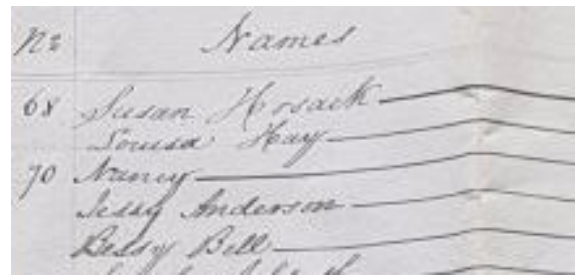 No Names
68 Susan Hosack
Louisa Hay
70 Nancy
Jessy Anderson
Bessy Bell